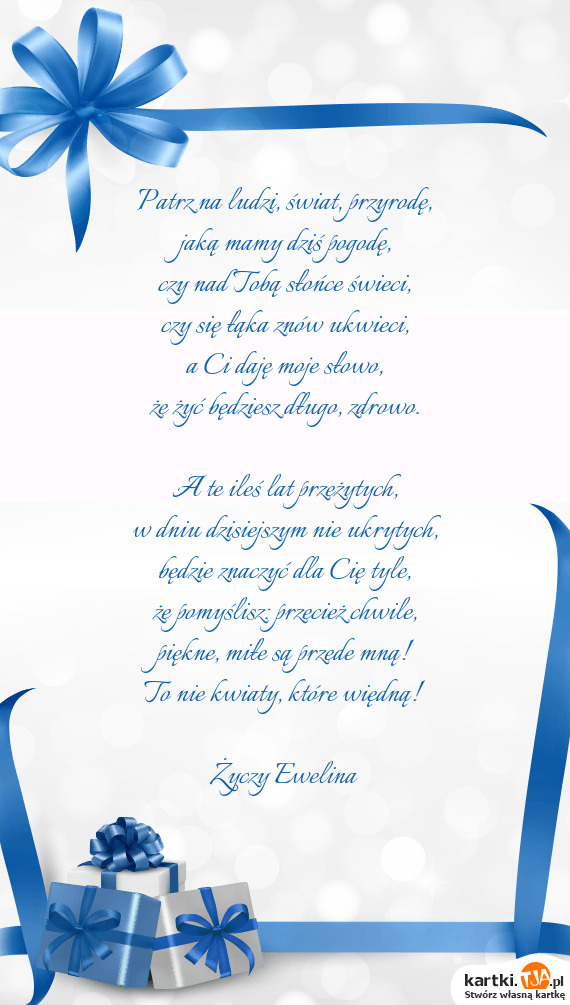 Patrz na ludzi, świat, przyrodę,
jaką mamy dziś pogodę,
czy nad Tobą słońce świeci,
czy się łąka znów ukwieci,
a Ci daję moje słowo,
że żyć będziesz długo, zdrowo.
A te ileś lat przeżytych,
w dniu dzisiejszym nie ukrytych,
będzie znaczyć dla Cię tyle,
że pomyślisz: przecież chwile,
piękne, miłe są przede mną!
To nie kwiaty, które więdną!
Życzy Ewelina
kartki.TJA.pl
Stwórz własną kartkę